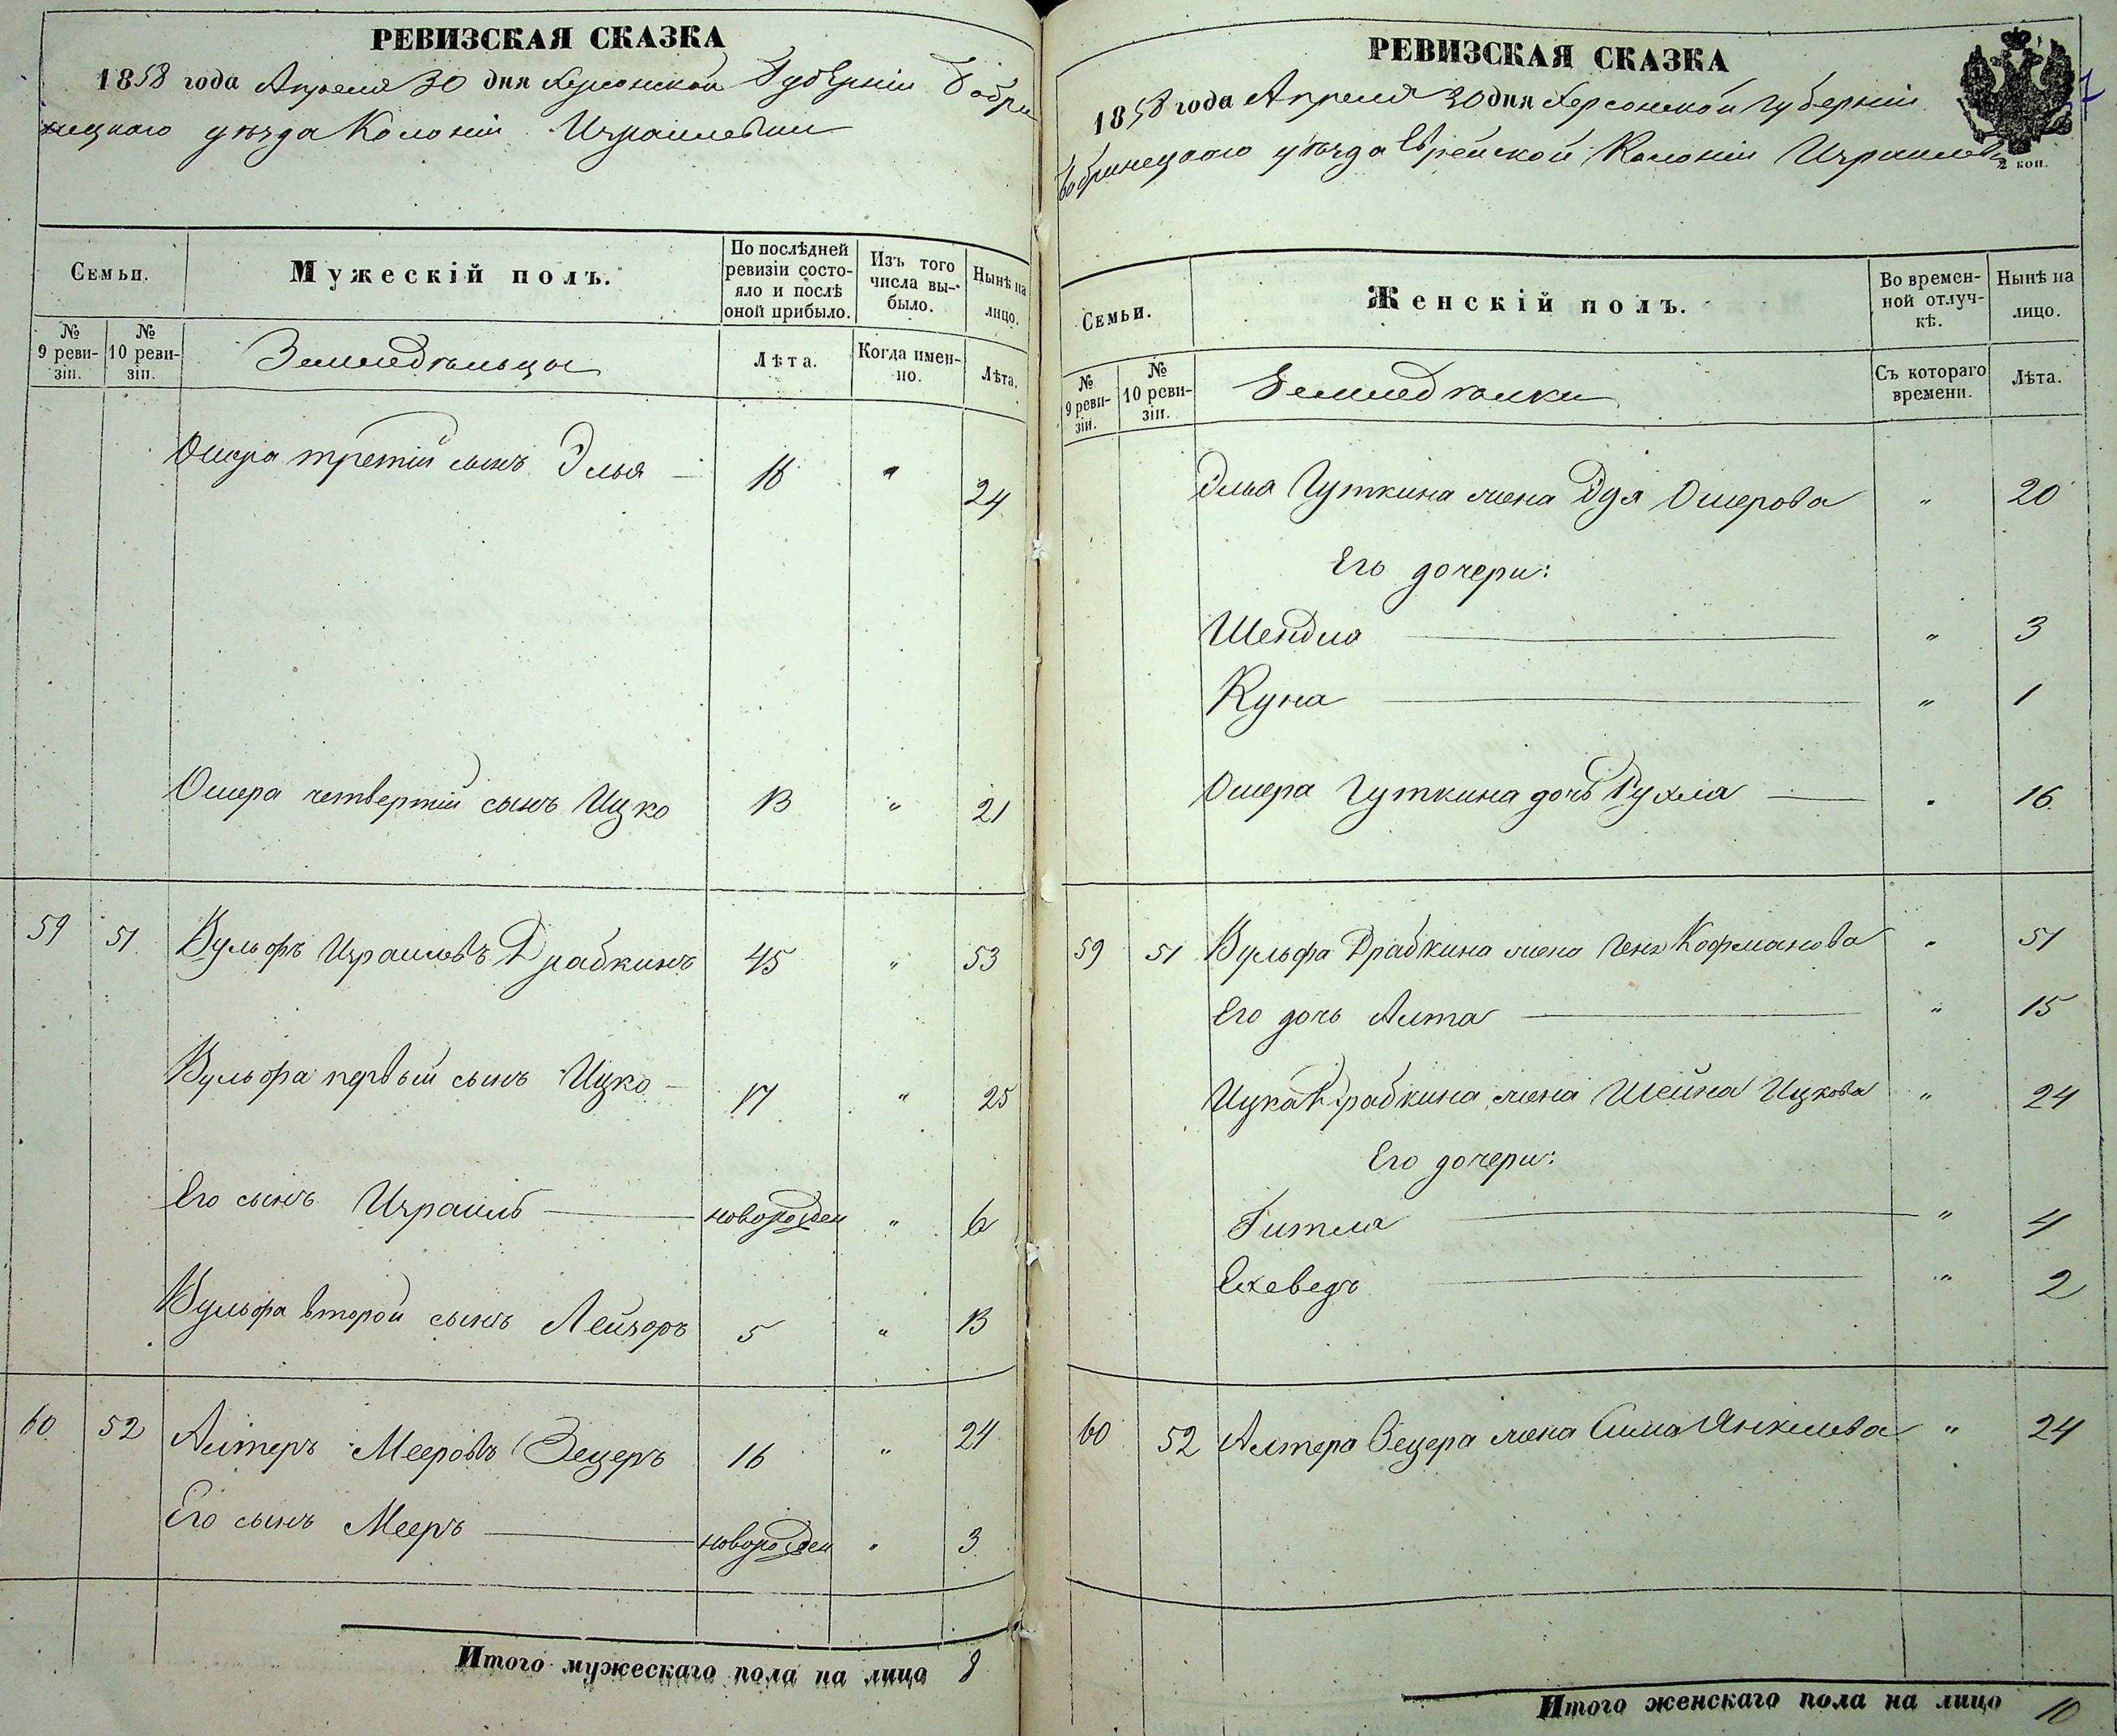 РЕВИЗСКАЯ СКАЗКА
1858 года Апреля 30 дня Херсонской Губерніи Бобри
нецкаго уѣзда Колоніи Израилевки
Семьи.
Мужескій полъ.
По послѣдней ревизіи состояло и послѣ оной прибыло.
Изъ того числа выбыло.
Нынѣ на лицо.
№ 9 ревизіи.
№ 10 ревизіи.
Земледѣльцы
Лѣта.
Когда именно.
Лѣта.
Ошера третій сынъ Элья — 16 " 24
Ошера четвертій сынъ Ицко 13 " 21
59 51 Вульфъ Израилевъ Драбкинъ 45 " 53
Вульфа первый сынъ Ицко — 17 " 25
Его сынъ Израиль — новорожден " 6
Вульфа второй сынъ Лейзоръ 5 " 13
60 52 Алтеръ Мееровъ Зецеръ 16 " 24
Его сынъ Мееръ — новорожден " 3
Итого мужескаго пола на лицо 8
РЕВИЗСКАЯ СКАЗКА
1858 года Апреля 30 дня Херсонской Губерніи
Бобринецкаго уѣзда Еврейской Колоніи Израилевки
2 коп.
Семьи.
Женскій полъ.
Во временной отлучкѣ.
Нынѣ на лицо.
№ 9 ревизіи.
№ 10 ревизіи.
Земледѣлки
Съ котораго времени.
Лѣта.
Элья Гуткина жена Эдя Ошерова " 20
Его дочери:
Шендля — " 3
Куна — " 1
Ошера Гуткина дочь Рухля — " 16
59 51 Вульфа Драбкина жена Геня Кофманова " 51
Его дочь Алта — " 15
Ицка Драбкина жена Шейна Ицкова " 24
Его дочери:
Гитля — " 4
Ехеведъ — " 2
60 52 Алтера Зецера жена Сима Янкелева " 24
Итого женскаго пола на лицо 10